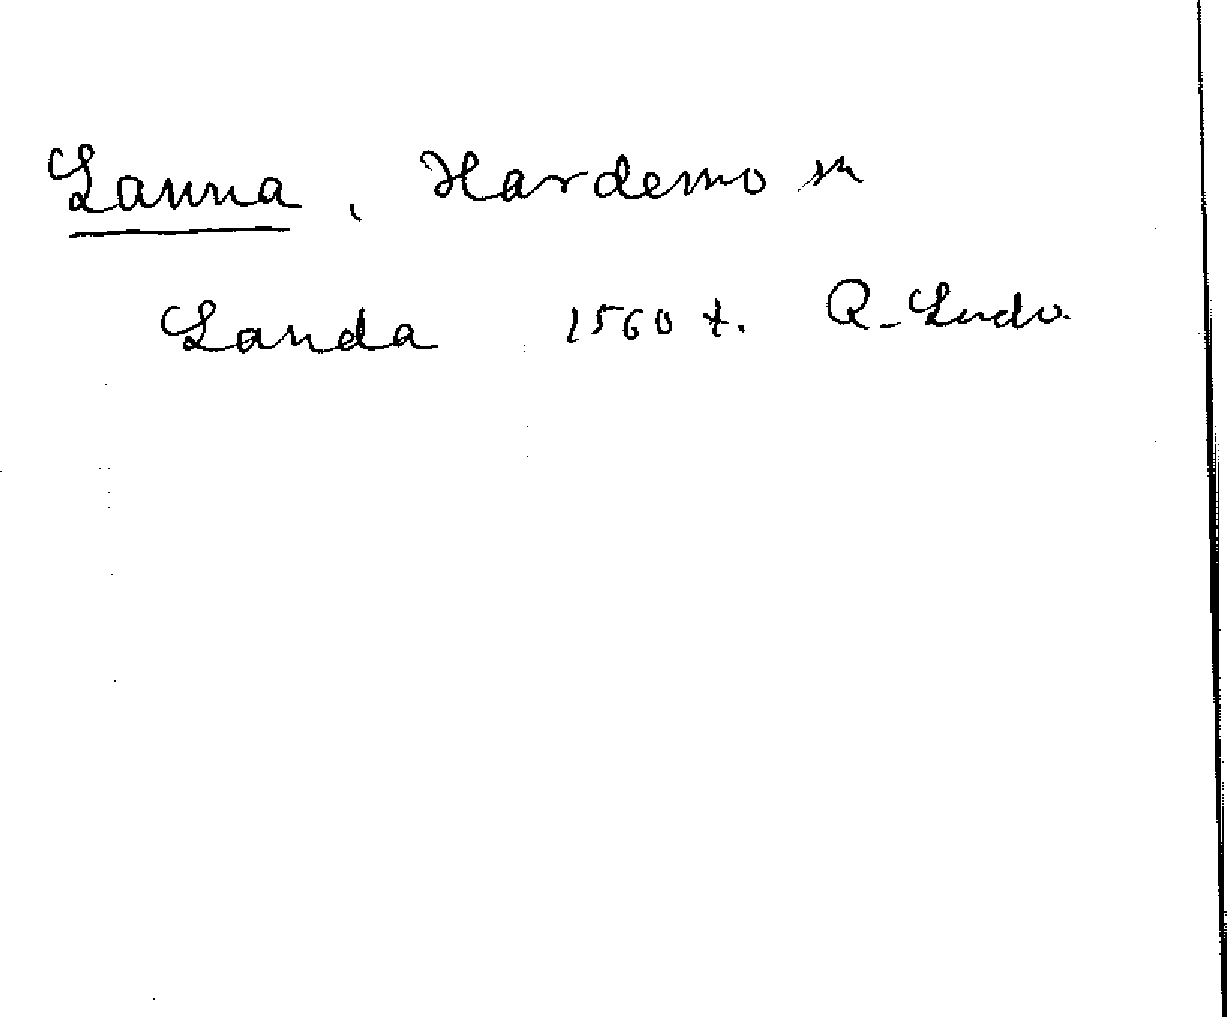 Lanna, Hardemo sn
Landa 1560 t.